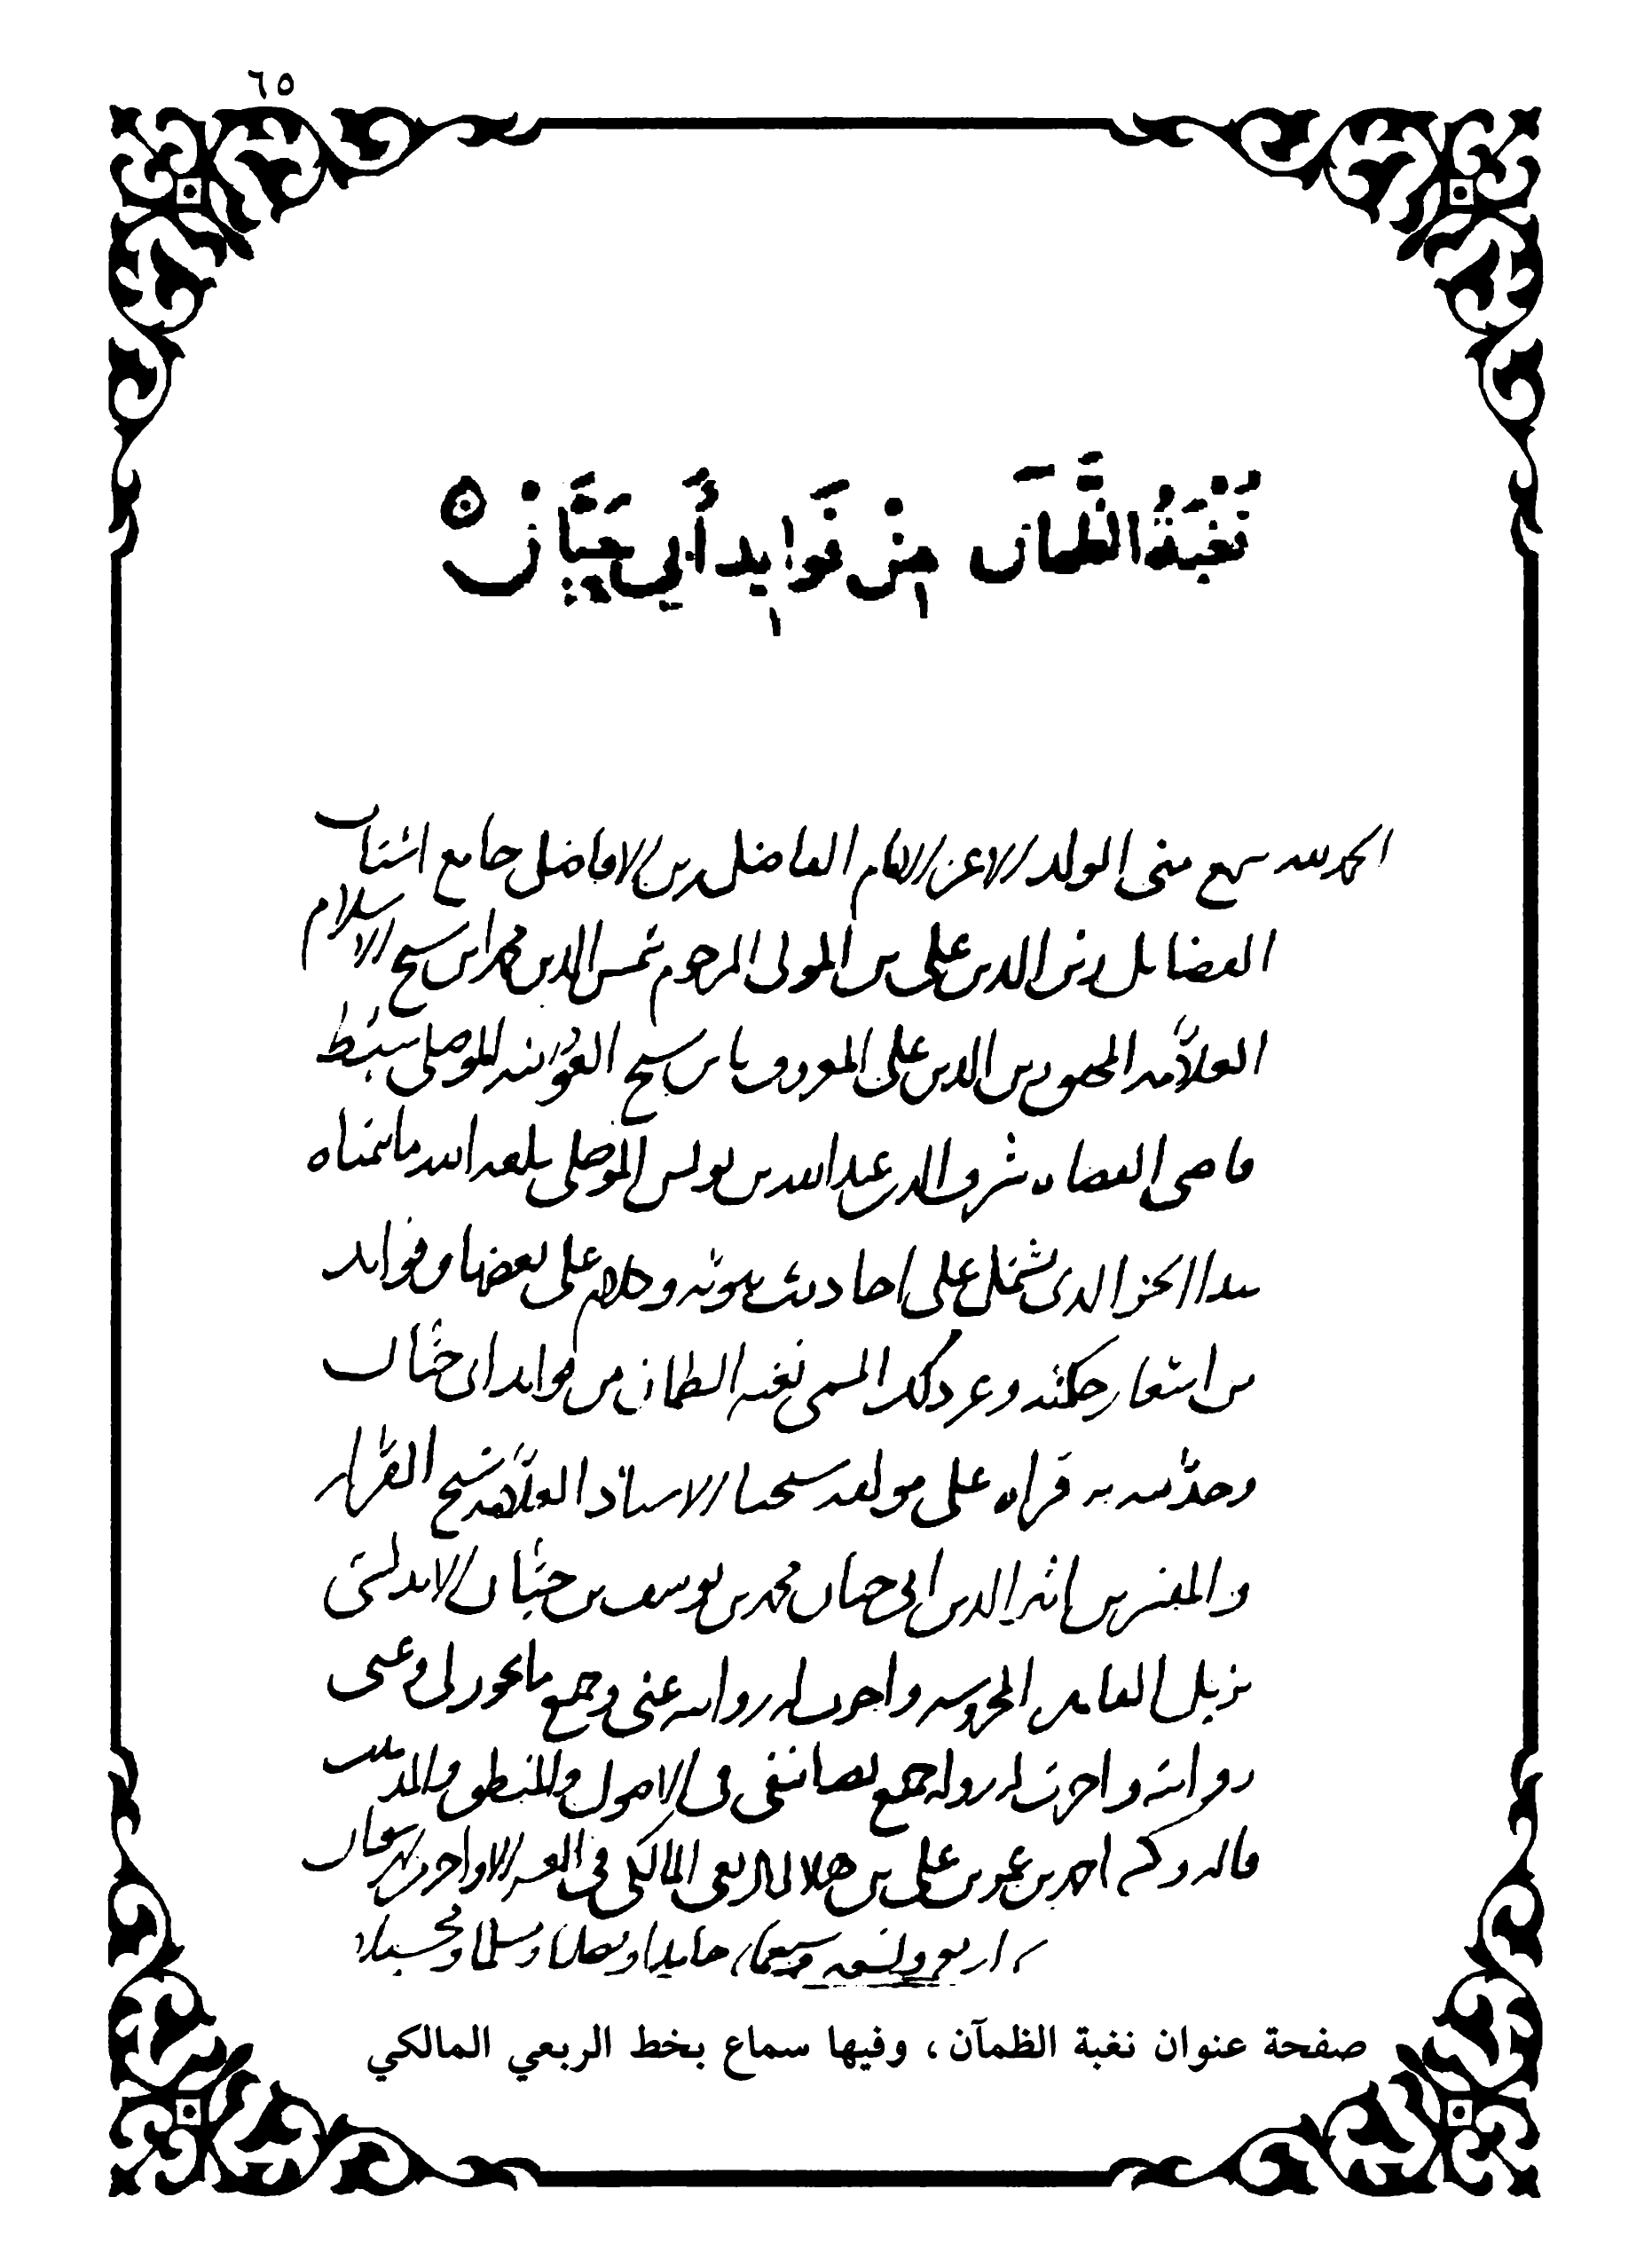 ٦٥
نُغْبَةُ الظَّمآن مِنْ فَوَايِدِ أَبي حَيَّان
الحمد لله سمع مني الولد الاعز الامام الفاضل زين الافاضل جامع اشتات
الفضايل زين الدين علي بن المولى المرحوم شمس الدين محمد ابن شيخ الاسلام
العلامه زين الدين علي المعروف بابن شيخ العوينه الموصلي سبط
قاضي القضاه شرف الدين عبدالله بن يونس الموصلي بلغه الله ما يتمناه
هذا الجزء الذي يشتمل على احاديث نبويه وكلام على بعضها وفوايد
من اشعار حكميه وغير ذلك المسمى نغبه الظمان من فوايد ابي حيان
وحدثته به قراه على مولفه شيخنا الاستاذ العلامه شيخ القراء
والمفسرين اثير الدين ابي حيان محمد بن يوسف بن حيان الاندلسي
نزيل القاهره المحروسه واجزت له روايته عني وجميع ما يجوز لي وعني
روايته واجزت له روايه جميع تصانيفي في الاصول والمنطق والمذهب
قاله وكتبه احمد بن عمر بن علي بن هلال الربعي المالكي في العشر الاواخر من شعبان
سنه اربع وسبعمايه حامدا ومصليا ومسلما
صفحة عنوان نغبة الظمآن ، وفيها سماع بخط الربعي المالكي